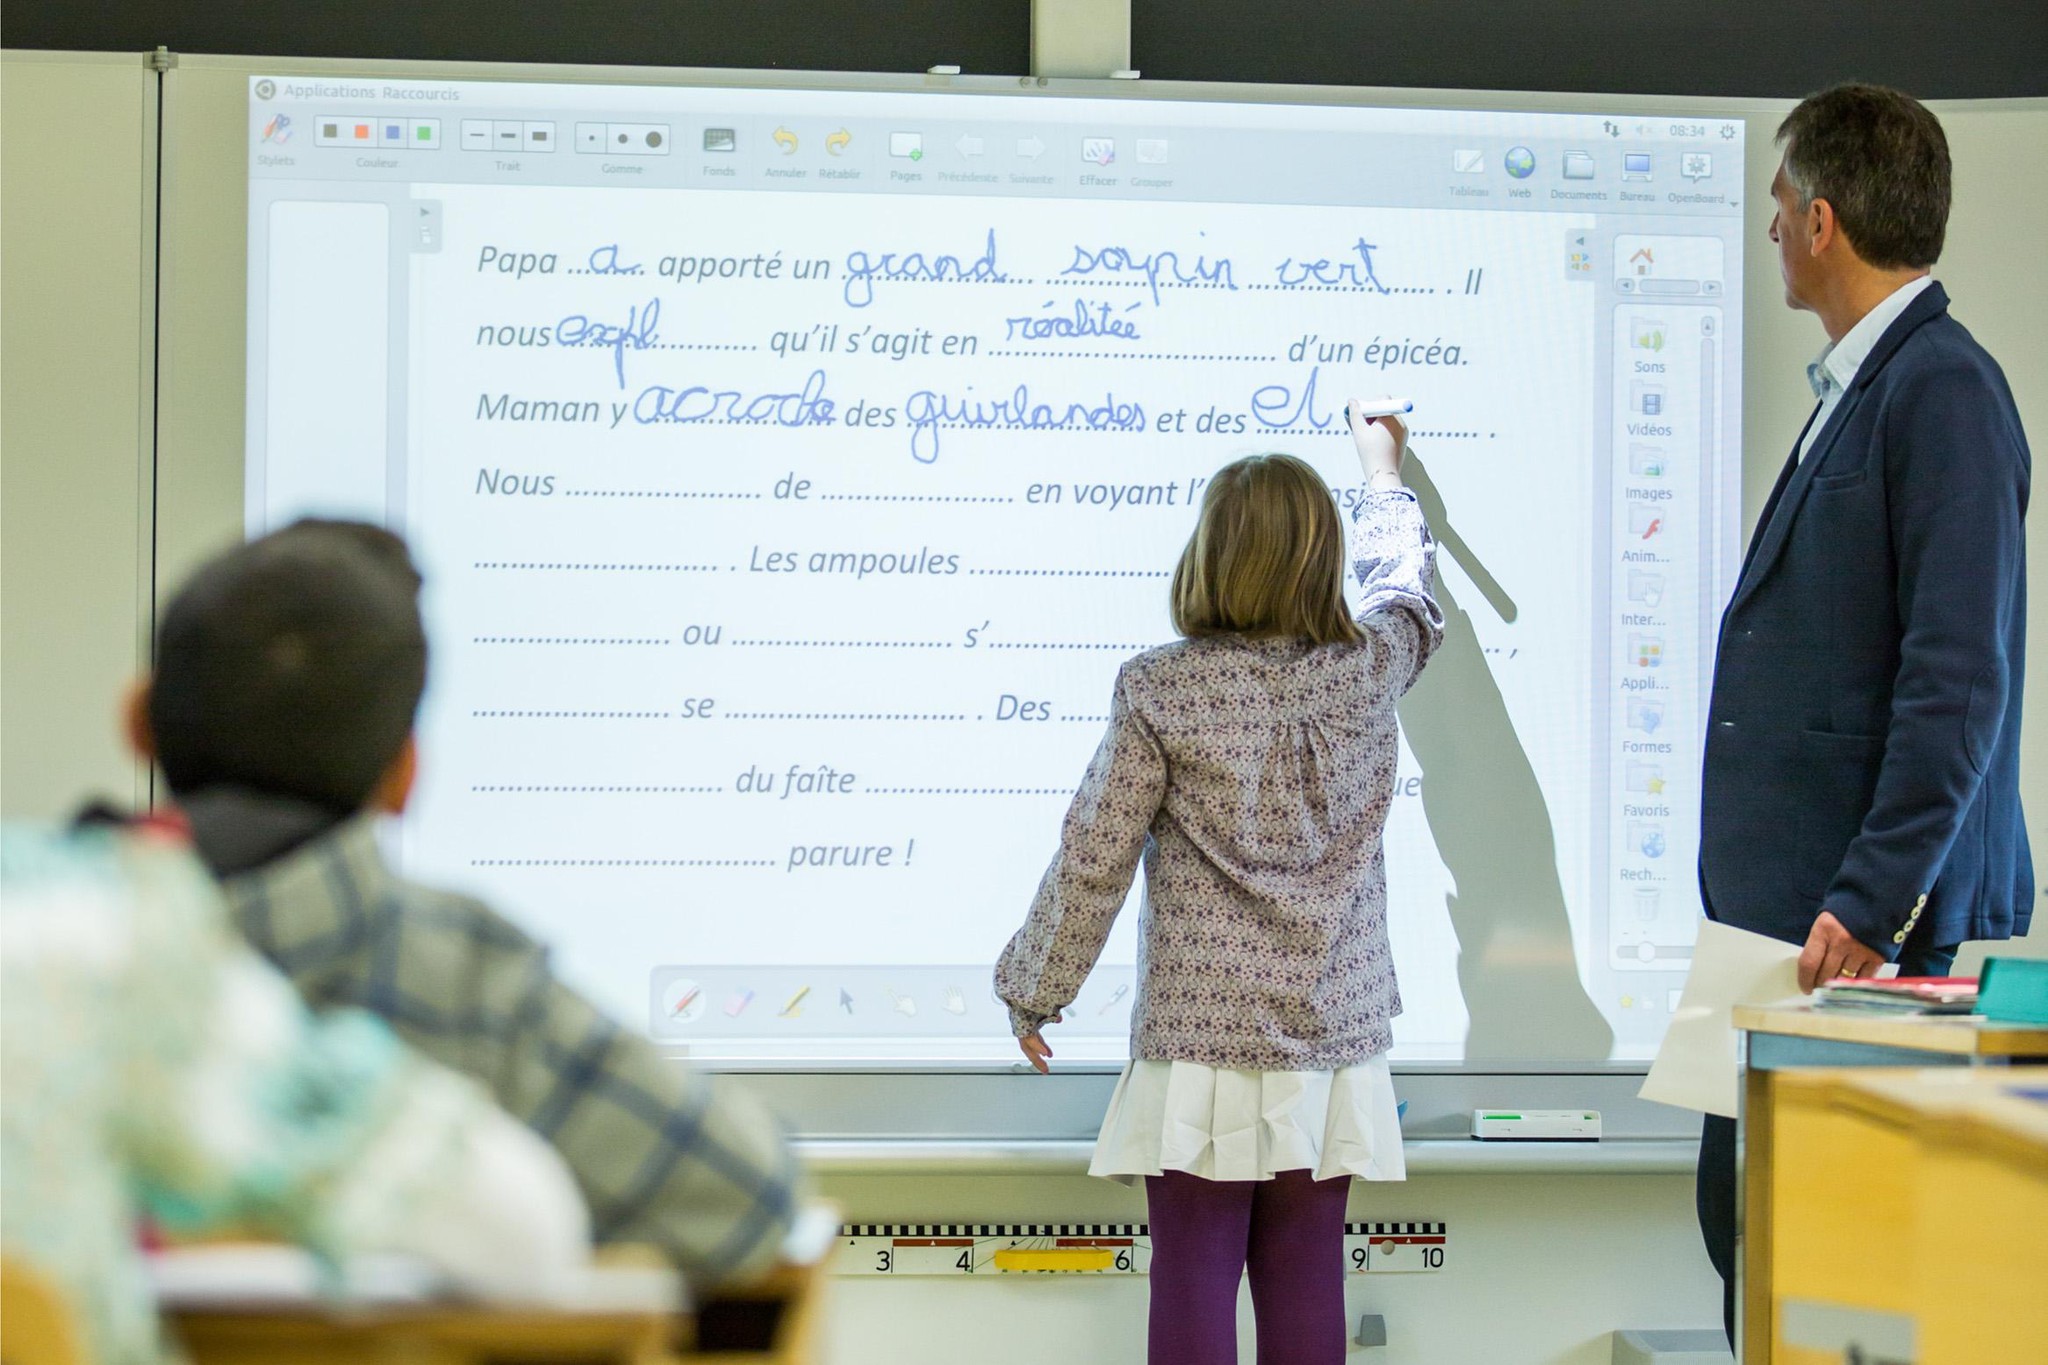 Applications Raccourcis
08:34
Stylets Couleur Trait Gomme Fonds Annuler Rétablir Pages Précédente Suivante Effacer Grouper Tableau Web Documents Bureau OpenBoard
Papa ...a... apporté un grand sapin vert . Il
nous expl............ qu'il s'agit en réalitée ............ d'un épicéa.
Maman y acroche des guirlandes et des el ............ .
Nous ........................ de ........................ en voyant l'
.............................. . Les ampoules ........................
........................ ou ........................... s'.................... ,
........................ se ............................. . Des ......
.............................. du faîte ........................ ue
..................................... parure !
Sons
Vidéos
Images
Anim...
Inter...
Appli...
Formes
Favoris
Rech...
3 4 6 9 10